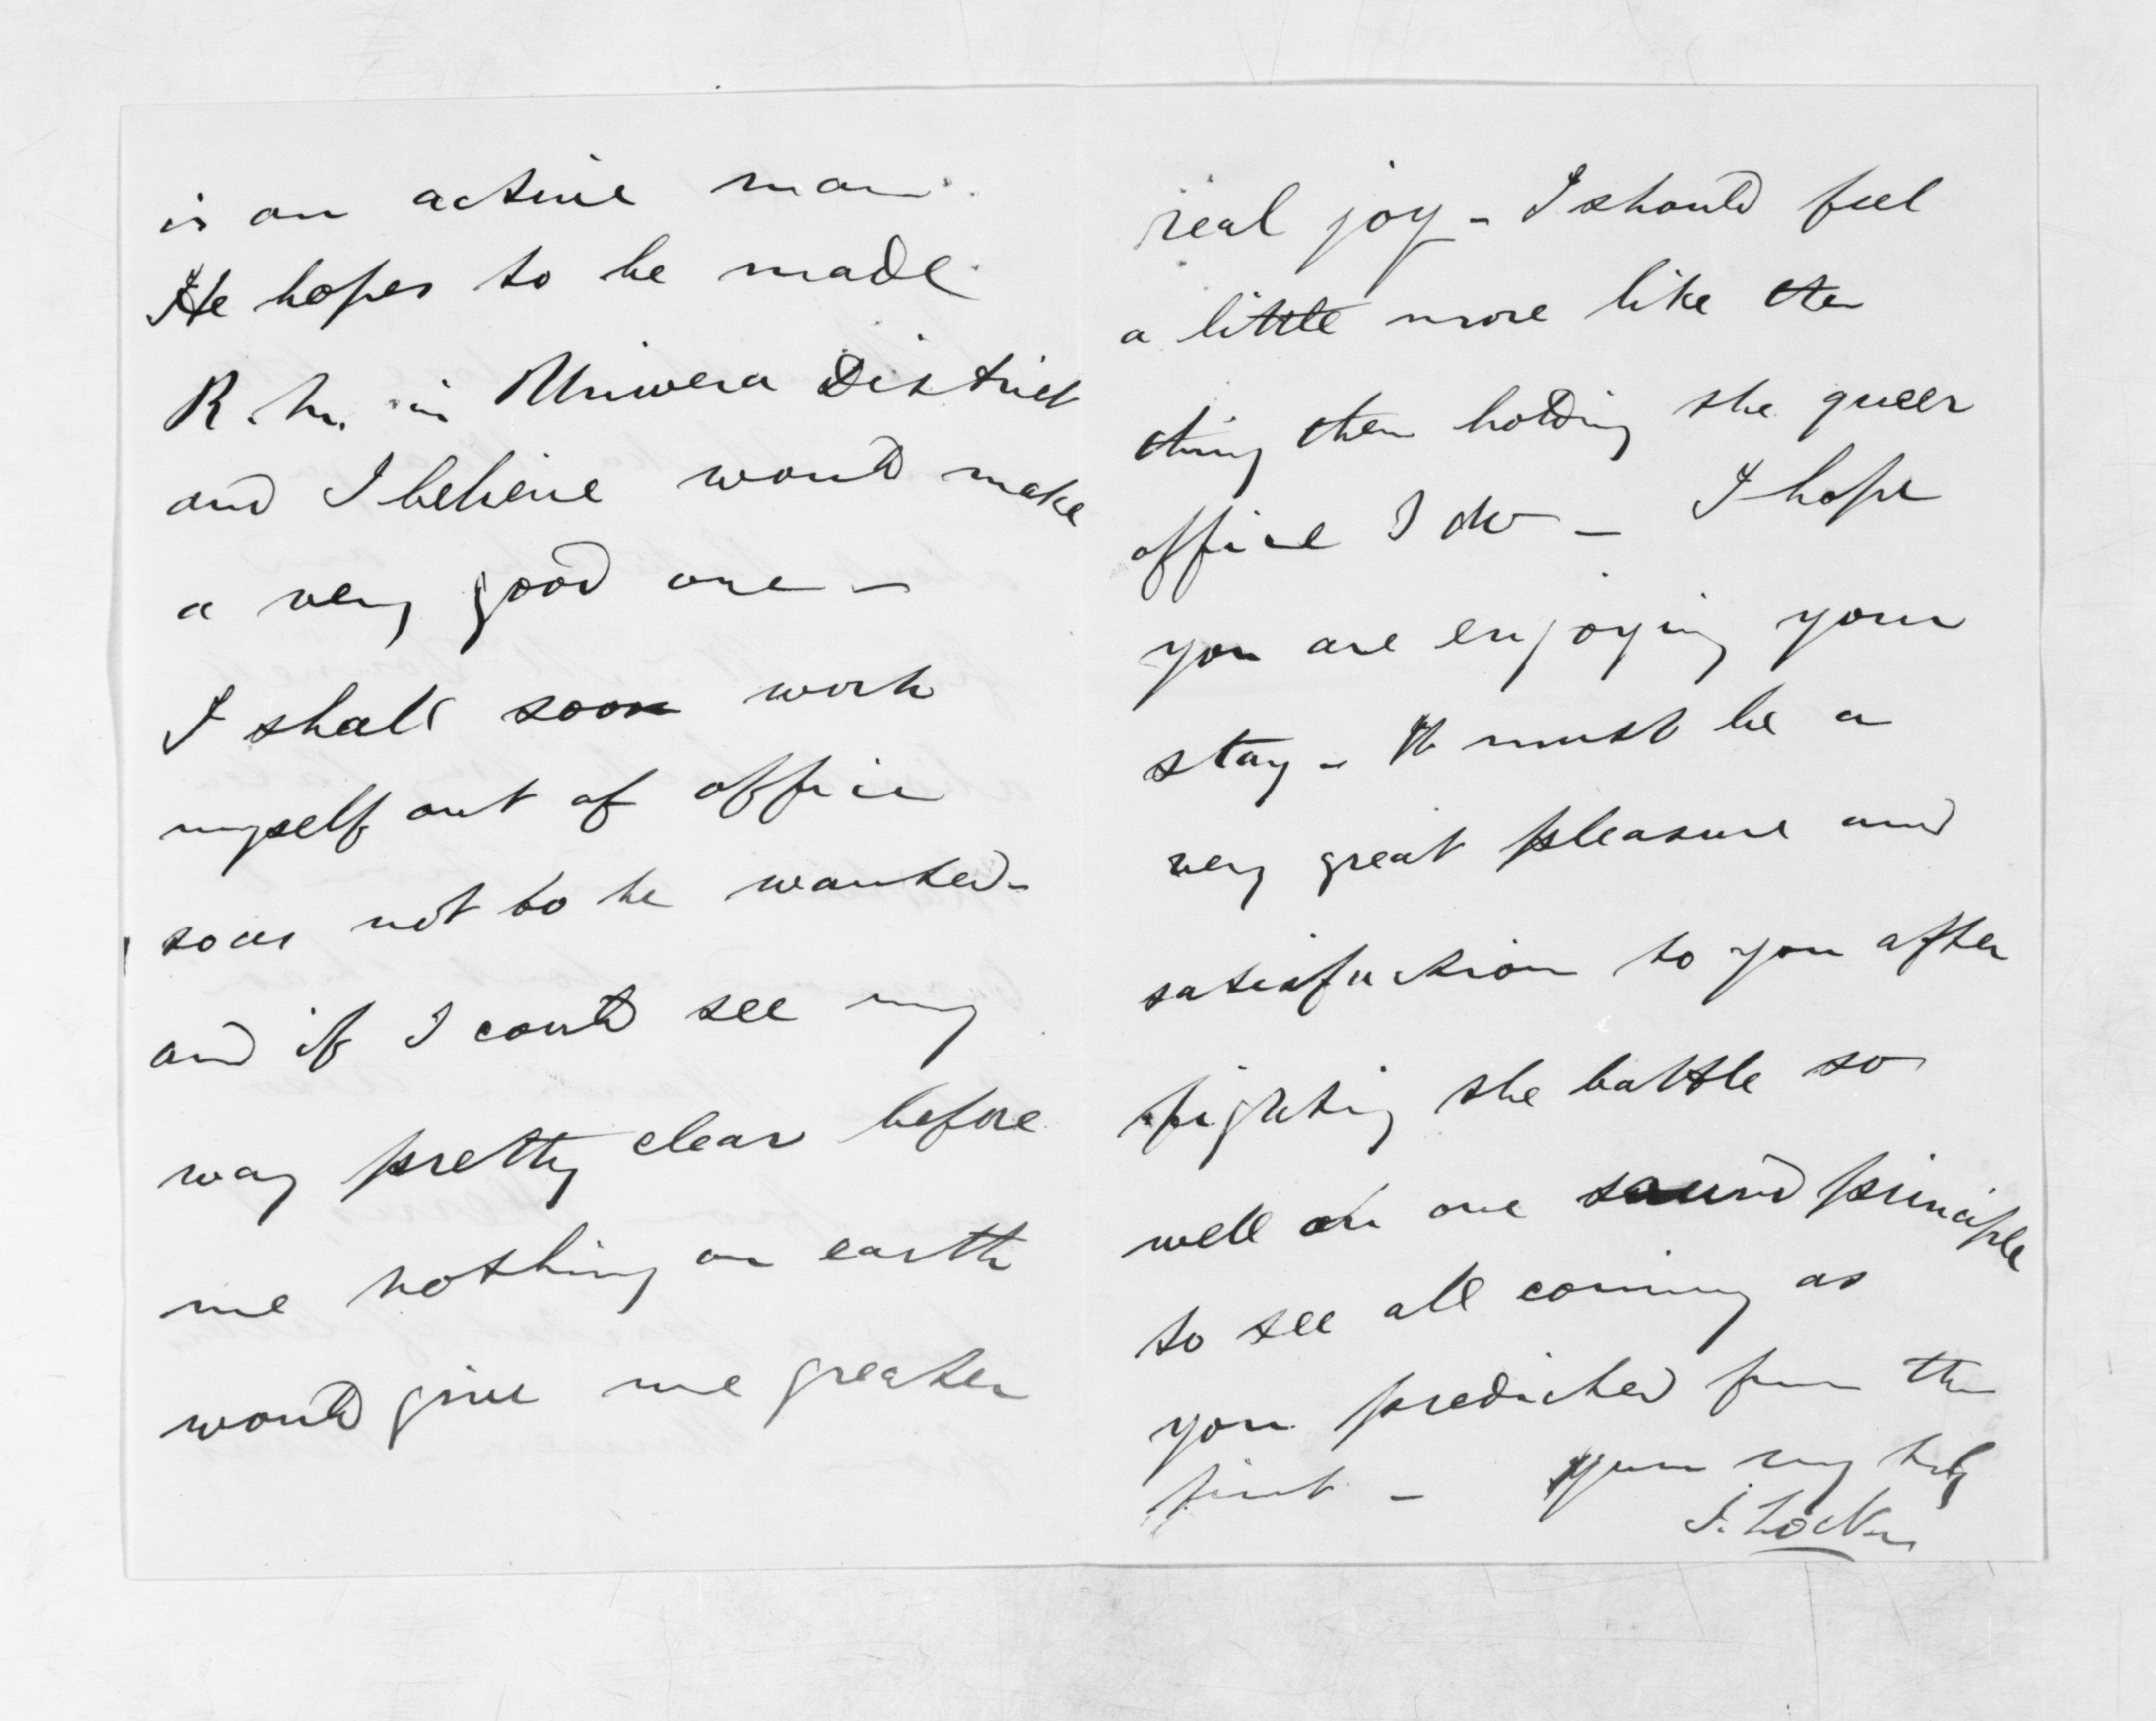 is an active man
He hopes to be made
R. M. in Uriwera District
and I believe would make
a very good one -
I shall soon work
myself out of office
so as not to be wanted -
and if I could see my
way pretty clear before
me nothing on earth
would give me greater
real joy - I should feel
a little more like the
thing then holding the queer
office I do - I hope
you are enjoying your
stay - It must be a
very great pleasure and
satisfaction to you after
fighting the battle so
well on one sound principle
to see all coming as
you predicted from the
first - Yours very truly